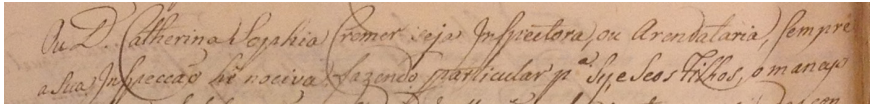 Ou D. Catherina Sophia Cremer seja Inspectora, ou Arendataria, sempre
a sua Inspecção hé nociva: fazendo particular p.ª Sy, e Seos Filhos, o manejo